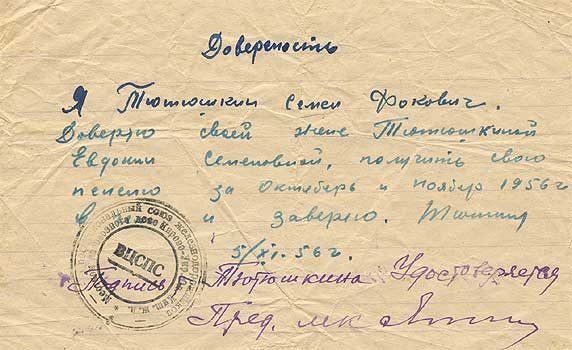 Довереность
Я Тютюшкин Семен Фокович.
Доверяю своей жене Тютюшкиной
Евдокии Семеновной, получить свою
пенсию за октябрь и ноябрь 1956 г
и заверяю.
5/XI. 56 г.
Подпись Тютюшкина Удостоверяется
Пред. МК
ВЦСПС